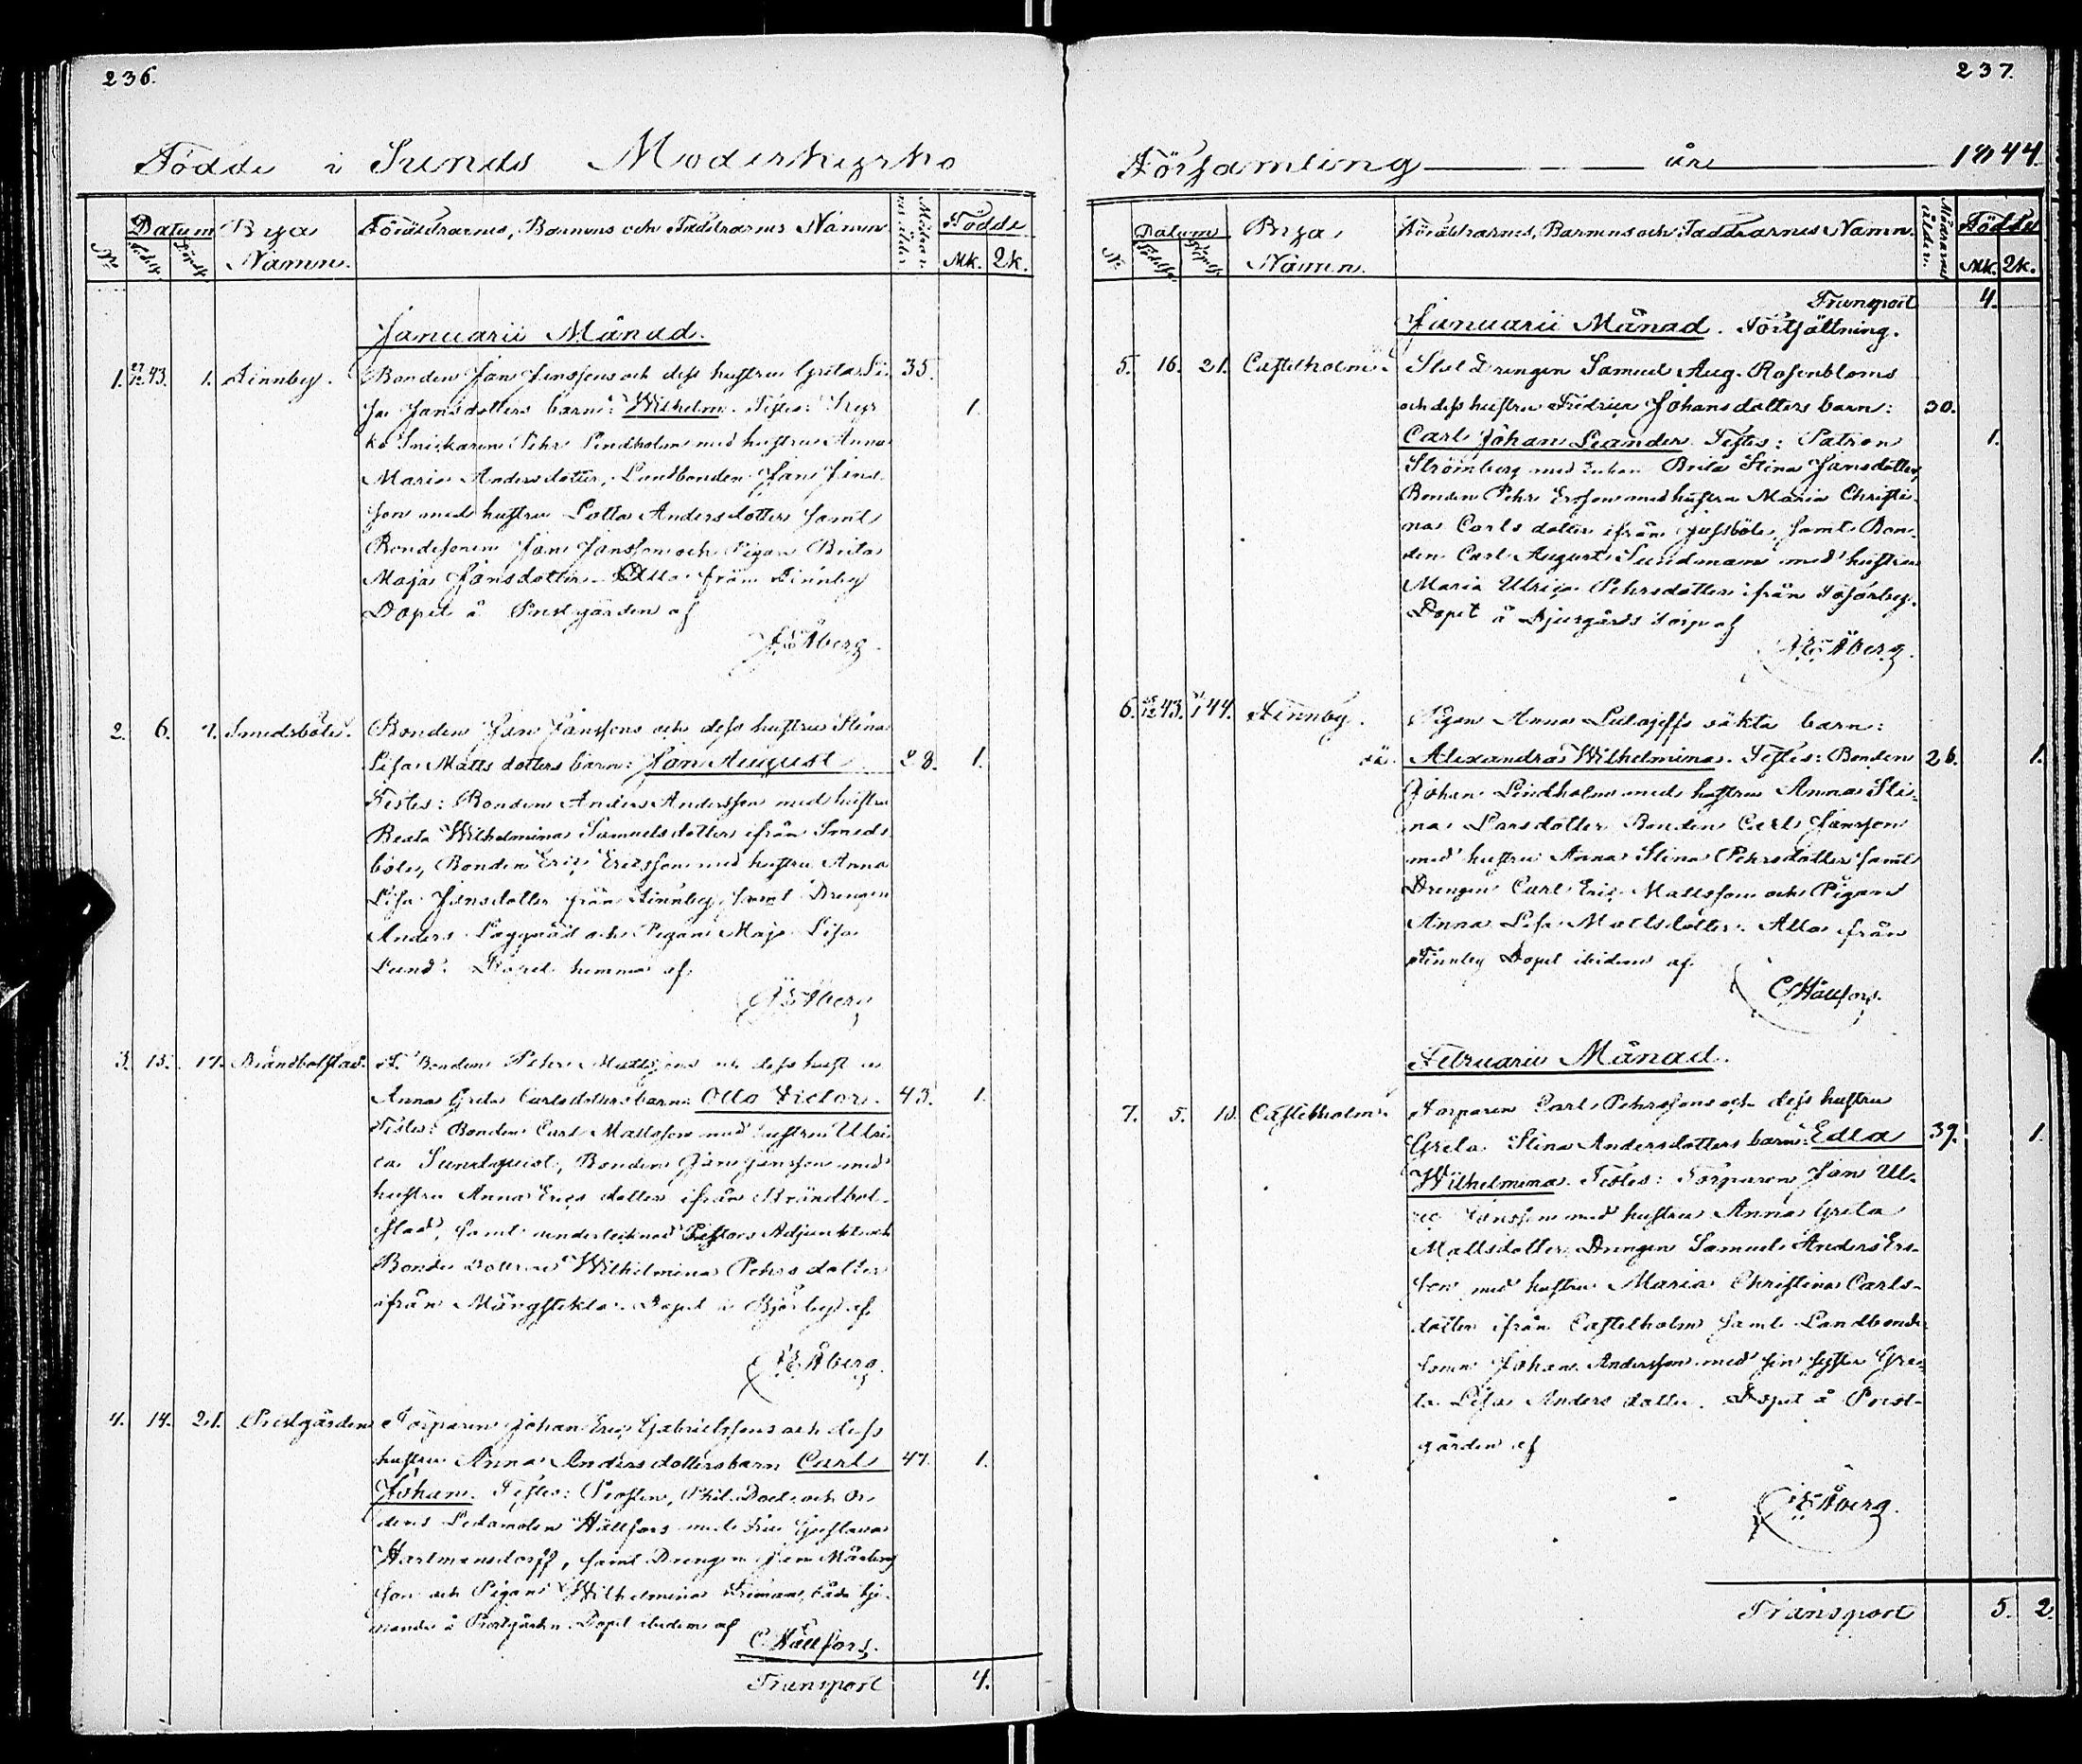 236.
Födde i Sunds Moderkyrko
No
Datum
Födelse
Döpelse
Bya Namn.
Föräldrarnes, Barnens och Faddrarnes Namn
Mödrarnas ålder
Födde
Mk. Qk.
Januarii Månad.
1. 27/12 43. 1. Finnby. Bonden Jan Janssons och dess hustru Greta Li- 35.
sa Jansdotters barn: Wilhelm. Testes: Kyr- 1.
ko Snickaren Pehr Lindholm med hustru Anna
Maria Andersdotter, Landbonden Jan Jans-
son med hustru Lotta Andersdotter samt
Bondesonen Jan Jansson och Pigan Brita
Maja Jansdotter. Alla från Finnby
Döpet å Prestgården af
F. E. Åberg.
2. 6. 7. Smedsböle. Bonden Jan Janssons och dess hustru Stina
Lisa Mattsdotters barn: Jan August 28. 1.
Testes: Bonden Anders Andersson med hustru
Beata Wilhelmina Samuelsdotter ifrån Smeds
böle, Bonden Eric Ericsson med hustru Anna
Lisa Jansdotter från Finnby samt Drengen
Anders Läggnäd och Pigan Maja Lisa
Lund. Döpet hemma af
F. E. Åberg
3. 15. 17. Brändbolstad. F. Bonden Pehr Mattssons och dess hustru
Anna Greta Carlsdotters barn: Otto Victor. 43. 1.
Testes: Bonden Carl Mattsson med hustru Ulri-
ca Sundquist, Bonden Jan Jansson med
hustru Anna Ericsdotter ifrån Brändbol-
stad, samt undertecknad Pastors Adjunkt och
Bonde Dottren Wilhelmina Pehrsdotter
ifrån Mångstekta. Döpet i Björby af
F. E. Åberg.
4. 14. 21. Prestgården Torparen Johan Eric Gabrielssons och dess
hustru Anna Andersdotters barn Carl 47. 1.
Johan. Testes: Prosten, Phil. Doct. och Or-
dens Ledamoten Hällfors med Fru Gustava
Hartmansdorff, samt Drengen Jan Mårtens
son och Pigan Wilhelmina Friman, båda tje-
nande å Prestgården. Döpet ibidem af
C. Hällfors.
Transport 4.
237.
Församling år 1844
No
Datum
Födelse
Döpelse
Bya Namn.
Föräldrarnes, Barnens och Faddrarnes Namn.
Mödrarnas ålder.
Födde
Mk. Qk.
Transport 4.
Januarii Månad. Fortsättning.
5. 16. 21. Castelholm. Stal Drengen Samuel Aug. Rosenbloms
och dess hustru Fredrica Johansdotters barn: 30.
Carl Johan Leander. Testes: Patron 1.
Strömberg med Enkan Brita Stina Jansdotter,
Bonden Pehr Ersson med hustru Maria Christi-
na Carlsdotter ifrån Jussböle, samt Bon-
den Carl August Sundman med hustru
Maria Ulrica Pehrsdotter ifrån Tosarby.
Döpet å Djurgårds torp af
F. E. Åberg.
6. 25/12 43. 1/1 44. Finnby. Pigan Anna Lulajeffs oäkta barn:
oä. Alexandra Wilhelmina. Testes: Bonden 26. 1.
Johan Lindholm med hustru Anna Sti-
na Larsdotter Bonden Carl Jansson
med hustru Anna Stina Pehrsdotter samt
Drengen Carl Eric Mattsson och Pigan
Anna Lisa Mattsdotter. Alla från
Finnby Döpet ibidem af
C. Hällfors.
Februarii Månad.
7. 5. 10. Castelholm. Torparen Carl Pehrssons och dess hustru
Greta Stina Andersdotters barn: Edla 39. 1.
Wilhelmina. Testes: Torparen Jan Ul-
ric Jansson med hustru Anna Greta
Mattsdotter, Drengen Samuel Anders Ers-
son med hustru Maria Christina Carls-
dotter ifrån Castelholm samt Landbonde
sonen Johan Andersson med sin syster Gre-
ta Lisa Andersdotter. Döpet å Prest-
gården af
F. E. Åberg.
Transport 5. 2.